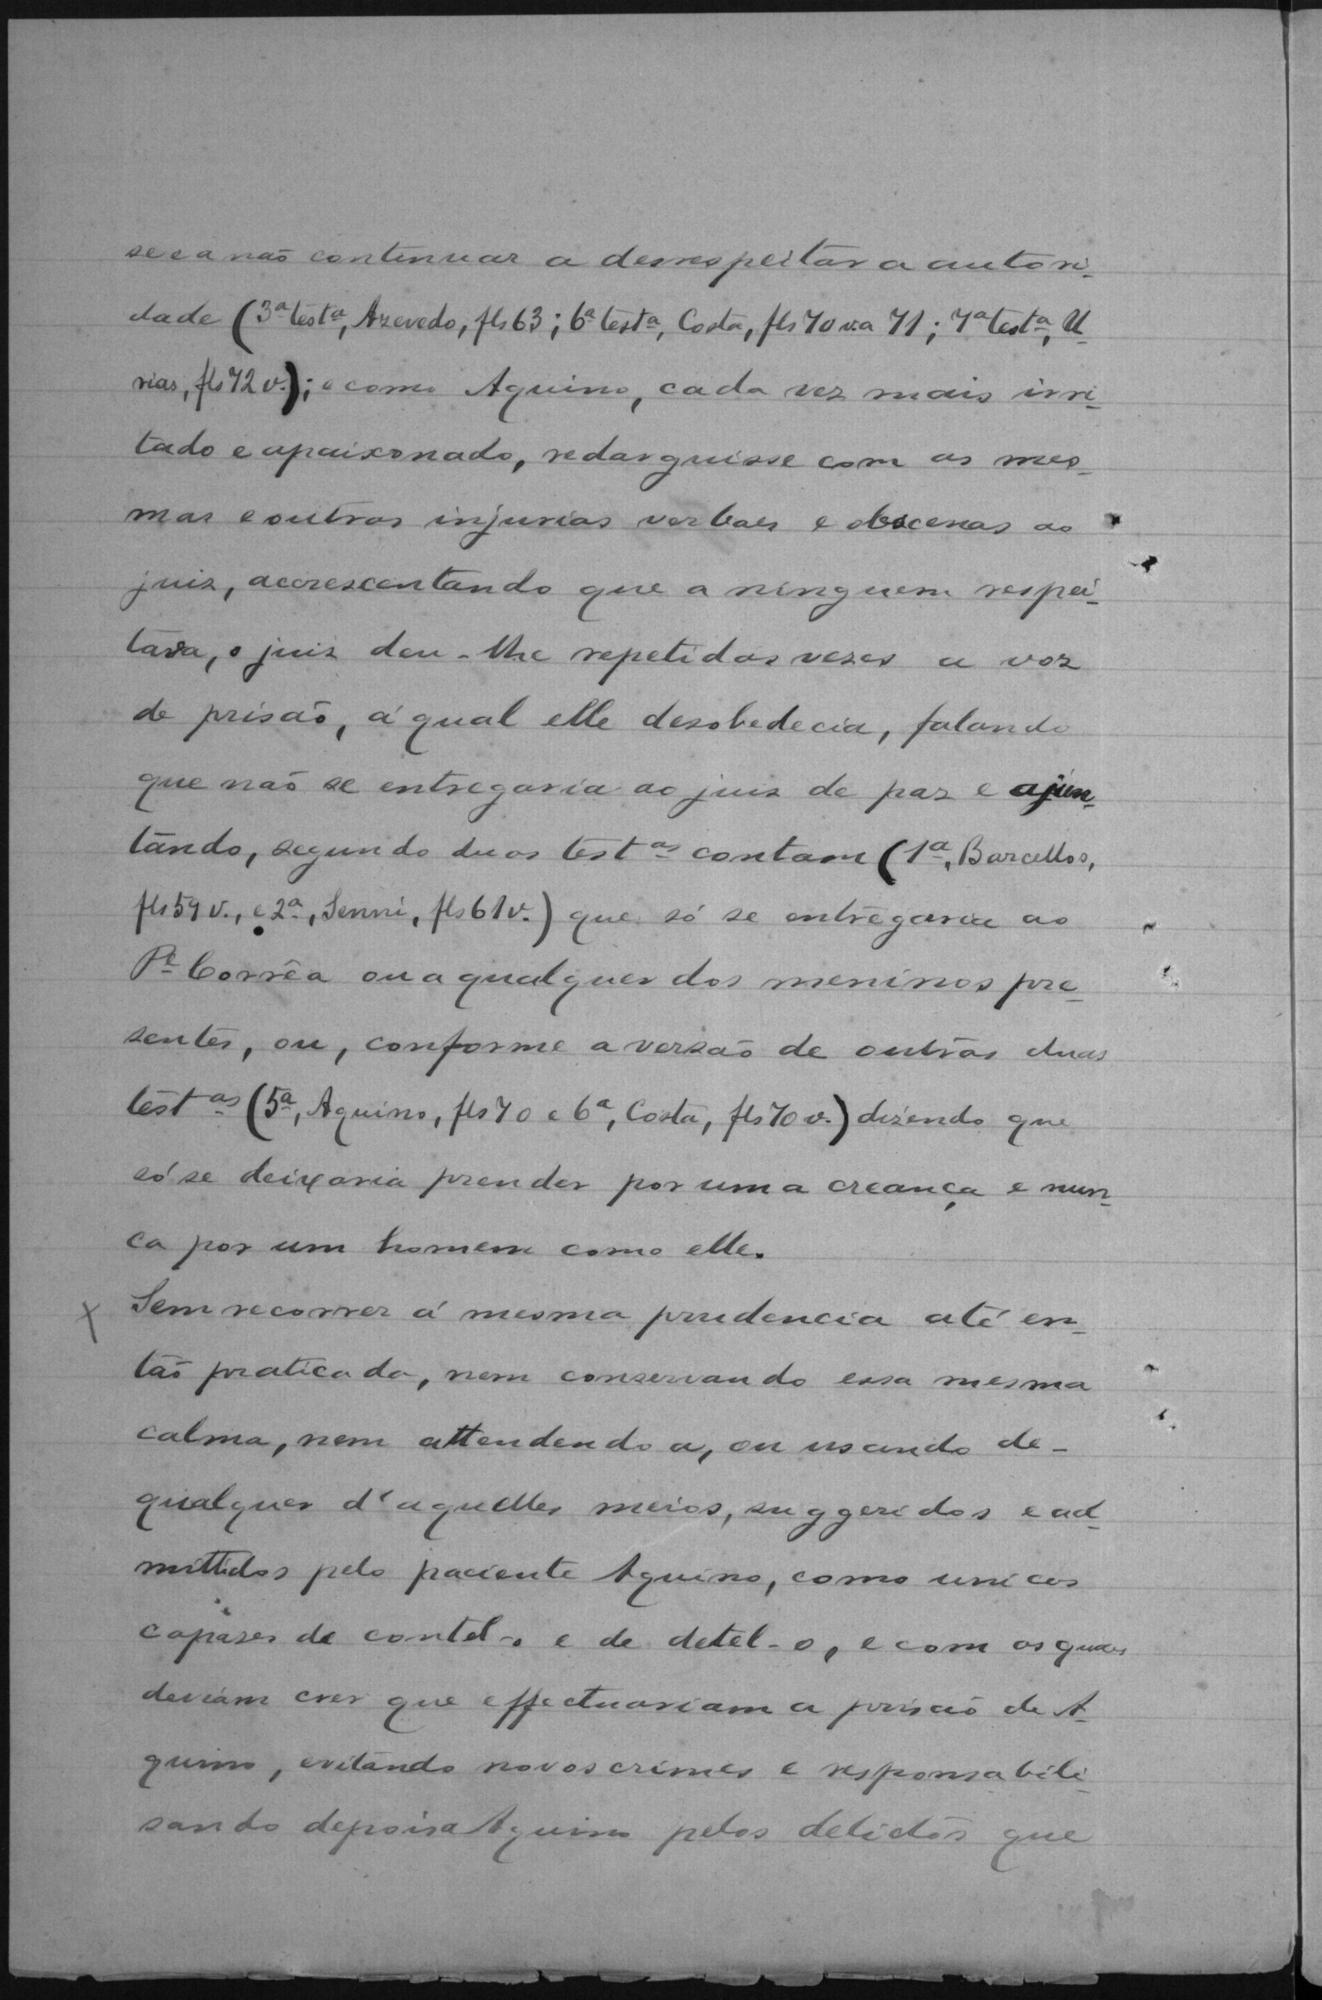 se e a não continuar a desrespeitar a autori-
dade (3ª testª, Azevedo, fls 63; 6ª testª, Costa, fls 70 v. a 71; 7ª testª, U-
rias, fls 72 v.); e como Aquino, cada vez mais irri-
tado e apaixonado, redarguisse com as mes-
mas e outras injurias verbaes e obscenas ao
juiz, accrescentando que a ninguem respei-
tava, o juiz deu-lhe repetidas vezes a voz
de prisão, á qual elle desobedecia, falando
que não se entregaria ao juiz de paz e ajun-
tando, segundo duas testas contam (1ª, Barcellos,
fls 59 v., e 2ª, Senni, fls 61 v.) que só se entregaria ao
Pe Corrêa ou a qualquer dos meninos pre-
sentes, ou, conforme a versão de outras duas
testas (5ª, Aquino, fls 70 e 6ª, Costa, fls 70 v.) dizendo que
só se deixaria prender por uma creança e nun-
ca por um homem como elle.
X Sem recorrer á mesma prudencia até en-
tão praticada, nem conservando essa mesma
calma, nem attendendo a, ou usando de-
qualquer d'aquelles meios, suggeridos e ad-
mittidos pelo paciente Aquino, como unicos
capazes de contel-o e de detel-o, e com os quaes
deviam crer que effectuariam a prisão de A-
quino, evitando novos crimes e responsabili-
sando depois a Aquino pelos delictos que